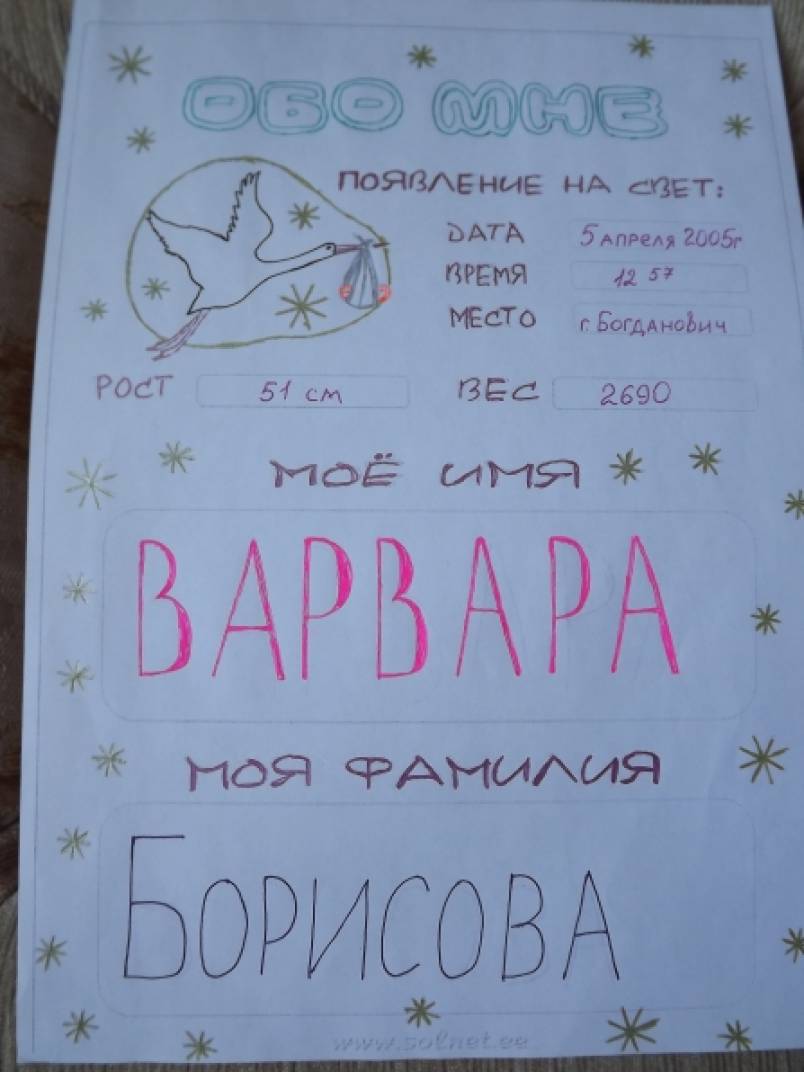 ОБО МНЕ
ПОЯВЛЕНИЕ НА СВЕТ:
ДАТА 5 АПРЕЛЯ 2005г
ВРЕМЯ 12 57
МЕСТО г. БОГДАНОВИЧ
РОСТ 51 см ВЕС 2690
МОЁ ИМЯ
ВАРВАРА
МОЯ ФАМИЛИЯ
БОРИСОВА
www.solnet.ee